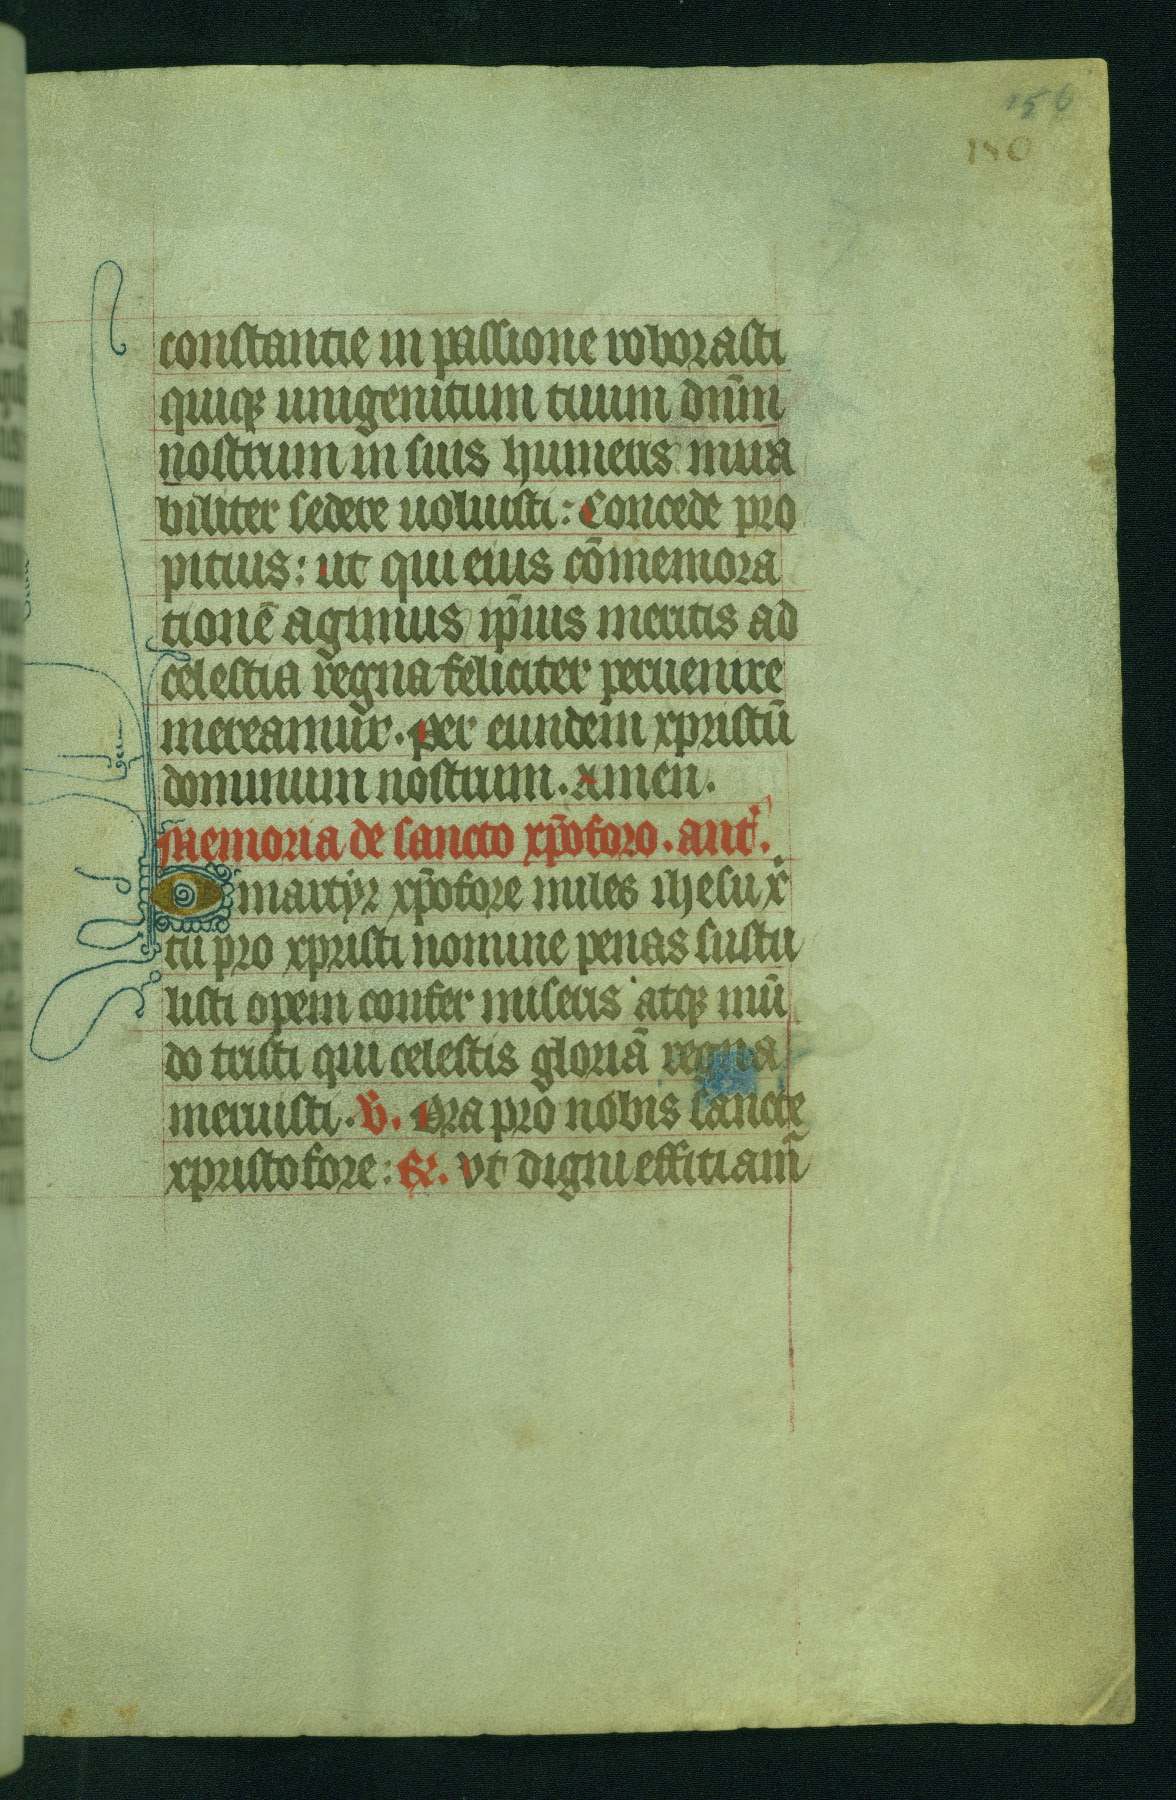 156
180
constantie in passione roborasti
quiqꝫ unigenitum tuum dn̄m
nostrum in suis humeris mira
biliter sedere uoluisti: Concede pro
pitius: ut qui eius cōmemora
tionē agimus ip̄ius meritis ad
celestia regna feliciter peruenire
mereamur. per eundem xpristū
dominum nostrum. Amen.
Memoria de sancto xp̄oforo. ant̄.
O martyr xp̄ofore miles ihesu x̄
tu pro xpristi nomine penas sustu
listi opem confer miseris atqꝫ mū
do tristi qui celestis gloriā regna
meruisti. ℣. Ora pro nobis sancte
xpristofore: ℟. Vt digni efficiam̄